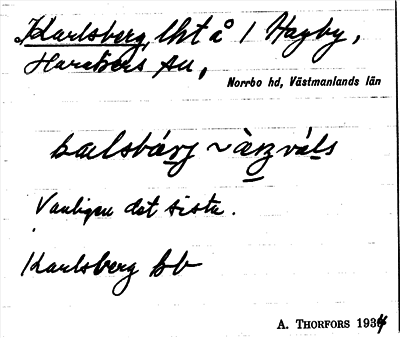 Karlsberg, lht å 1 Hagby,
Harakers sn,
Norrbo hd, Västmanlands län
Vanligen det sista.
Karlsberg bb
A. THORFORS 1934